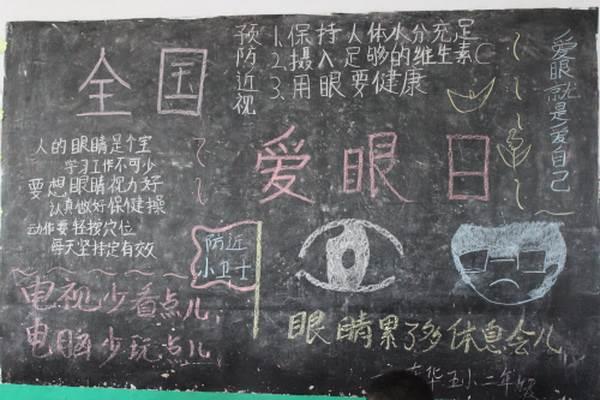 全国
爱眼日
预防近视
1.保持人体水分充足
2.摄入足够的维生素C
3.用眼要健康
爱眼就是爱自己
人的眼睛是个宝
学习工作不可少
要想眼睛视力好
认真做好保健操
动作要轻按穴位
每天坚持定有效
防近
小卫士
电视少看点儿
电脑少玩点儿
眼睛累了多休息会儿
华玉小二年级